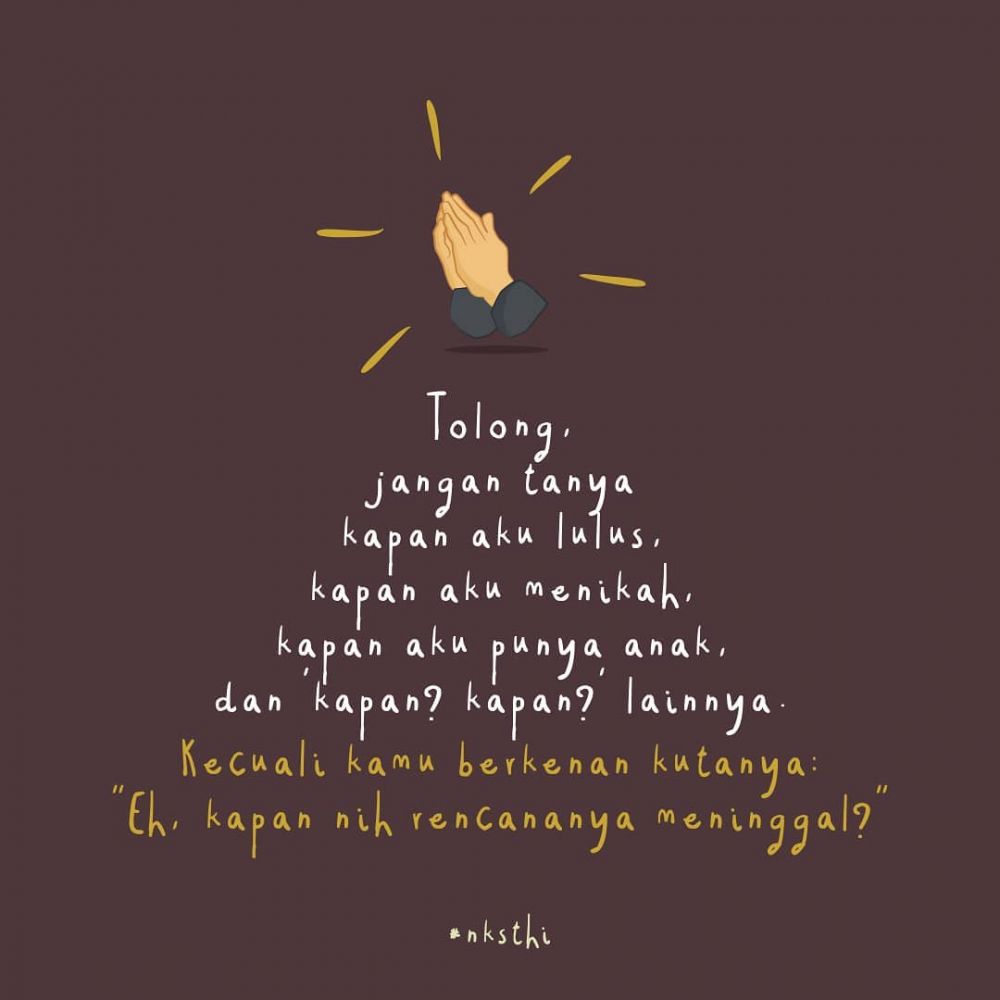 Tolong,
jangan tanya
kapan aku lulus,
kapan aku menikah,
kapan aku punya anak,
dan 'kapan? kapan?' lainnya.
Kecuali kamu berkenan kutanya:
"Eh, kapan nih rencananya meninggal?"
#nksthi